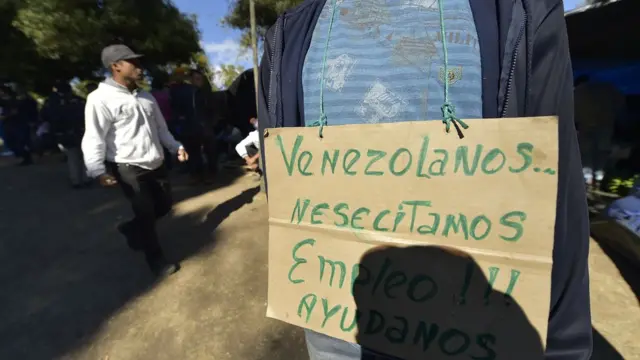 VENEZOLANOS...
NESECITAMOS
EMPLEO!!!
AYUDANOS